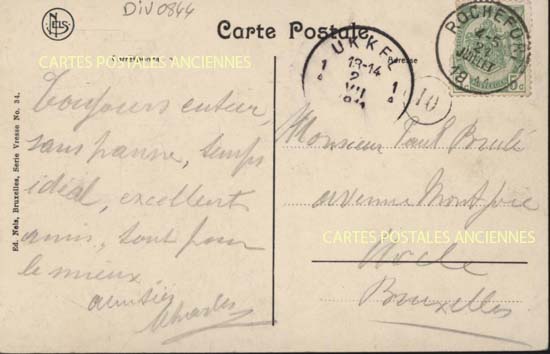 DIV0844
NELS
Carte Postale
Correspondance
Adresse
UKKEL
13-14
2
VII
1911
ROCHEFORT
4-5
2
JUILLET
5c
10
CARTES POSTALES ANCIENNES
Toujours entier,
sans panne, temps
idéal, excellent
amis, tout pour
le mieux
amitiés
Charles
Monsieur Paul
avenue Montjoie
CARTES POSTALES ANCIENNES
Uccle
Bruxelles
Ed. Nels, Bruxelles, Serie Vresse No. 34.